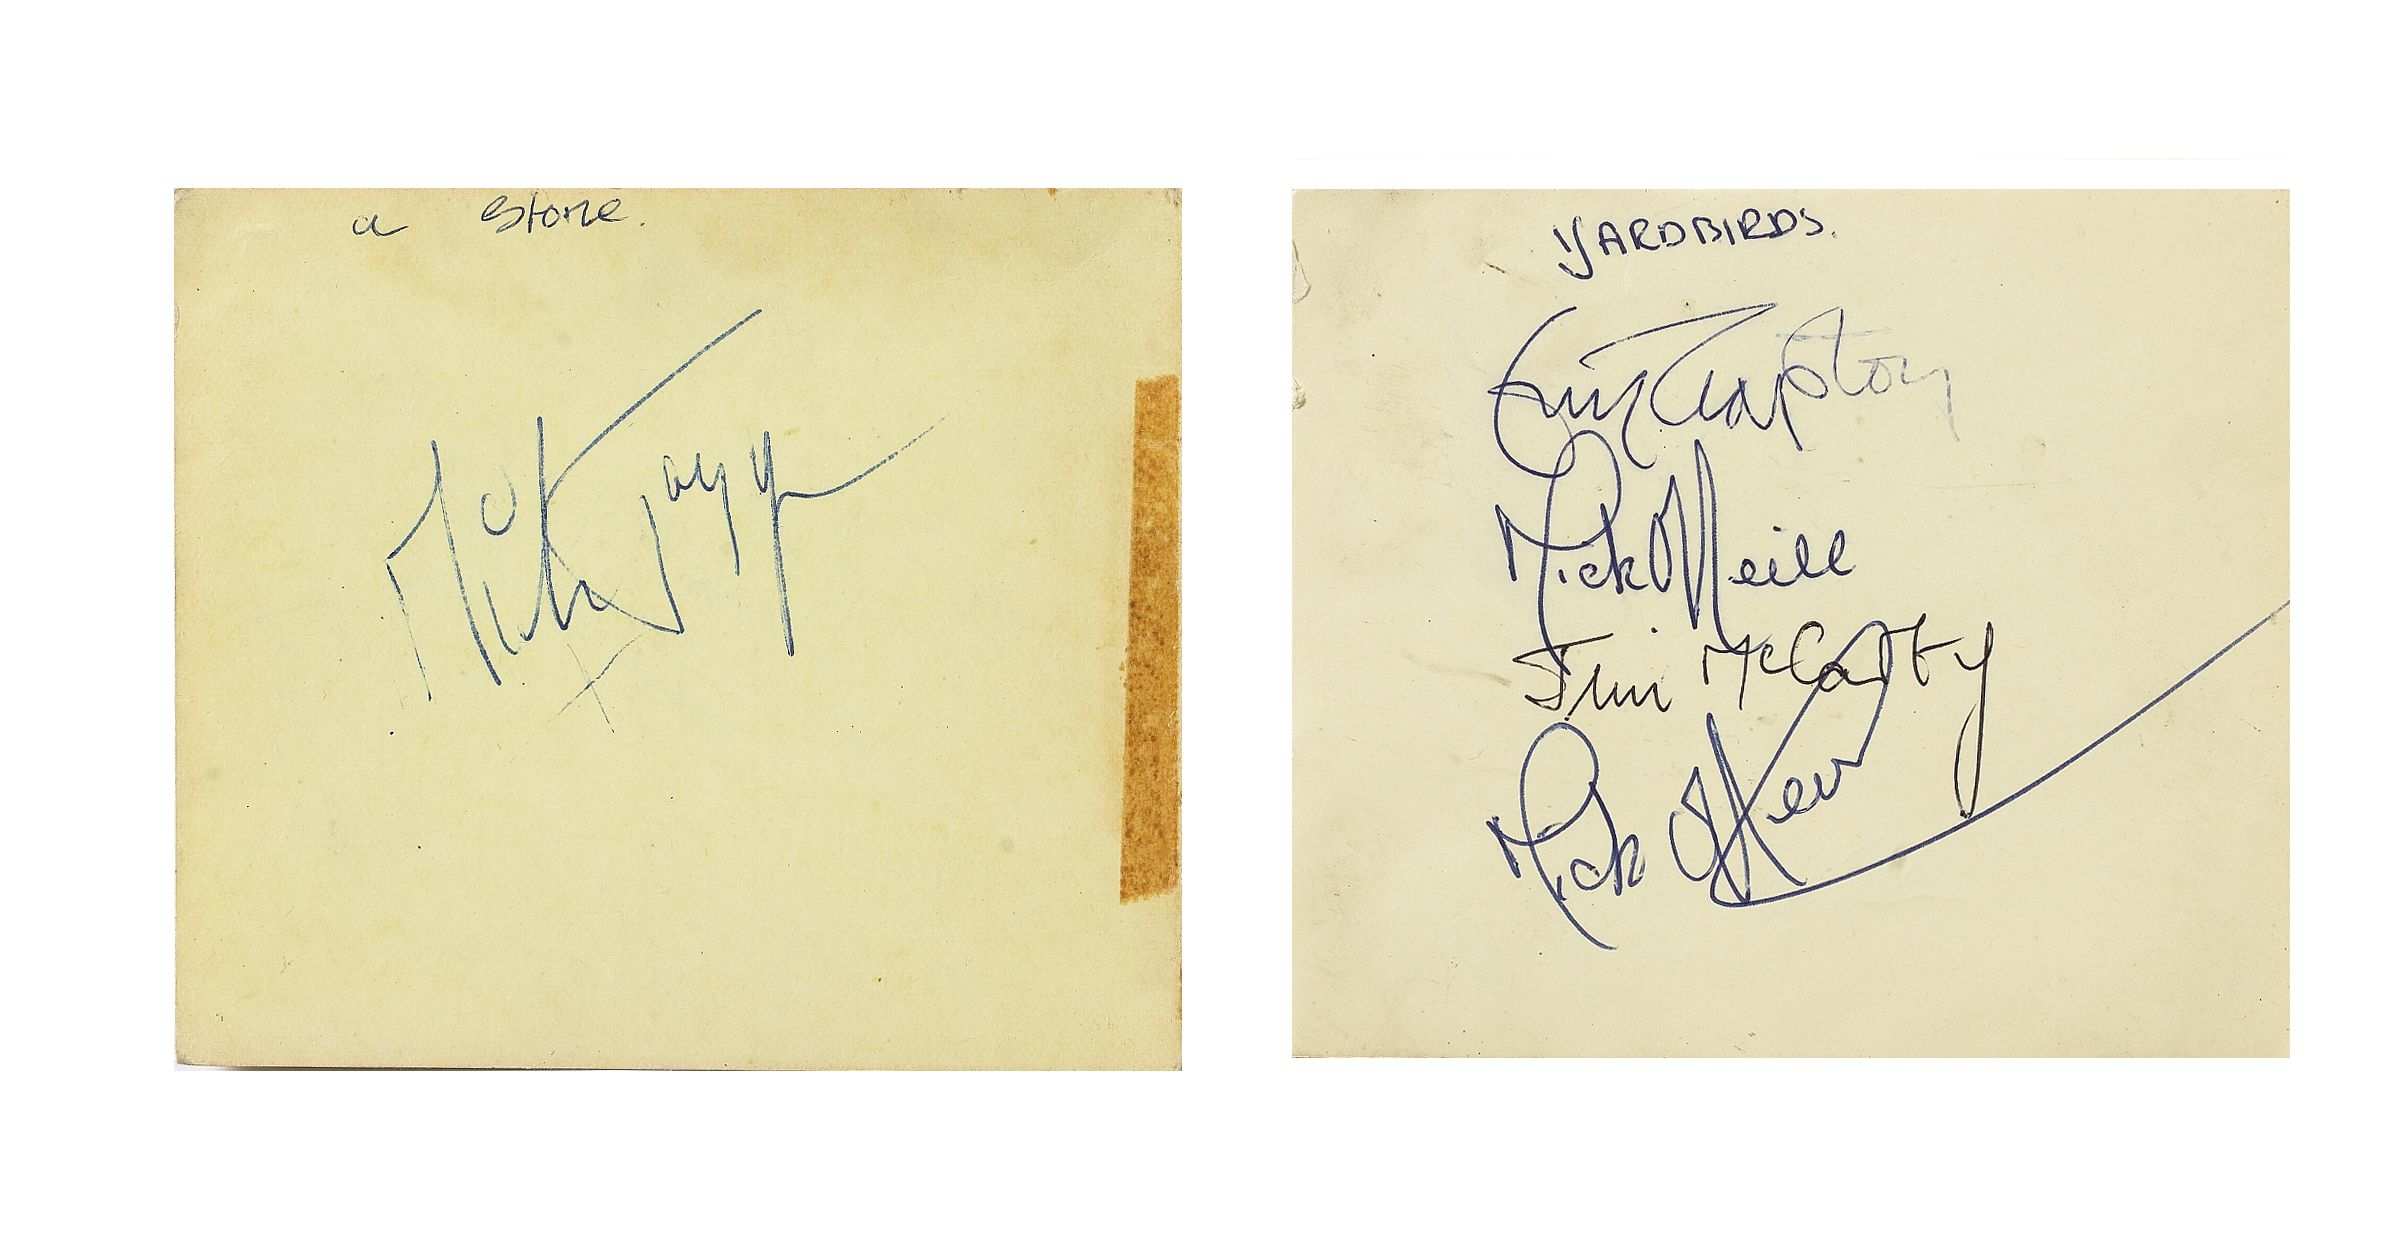 a Stone.
Mick Jagger
YARDBIRDS.
Eric Clapton
Mick O'Neill
Jim McCarty
Mick